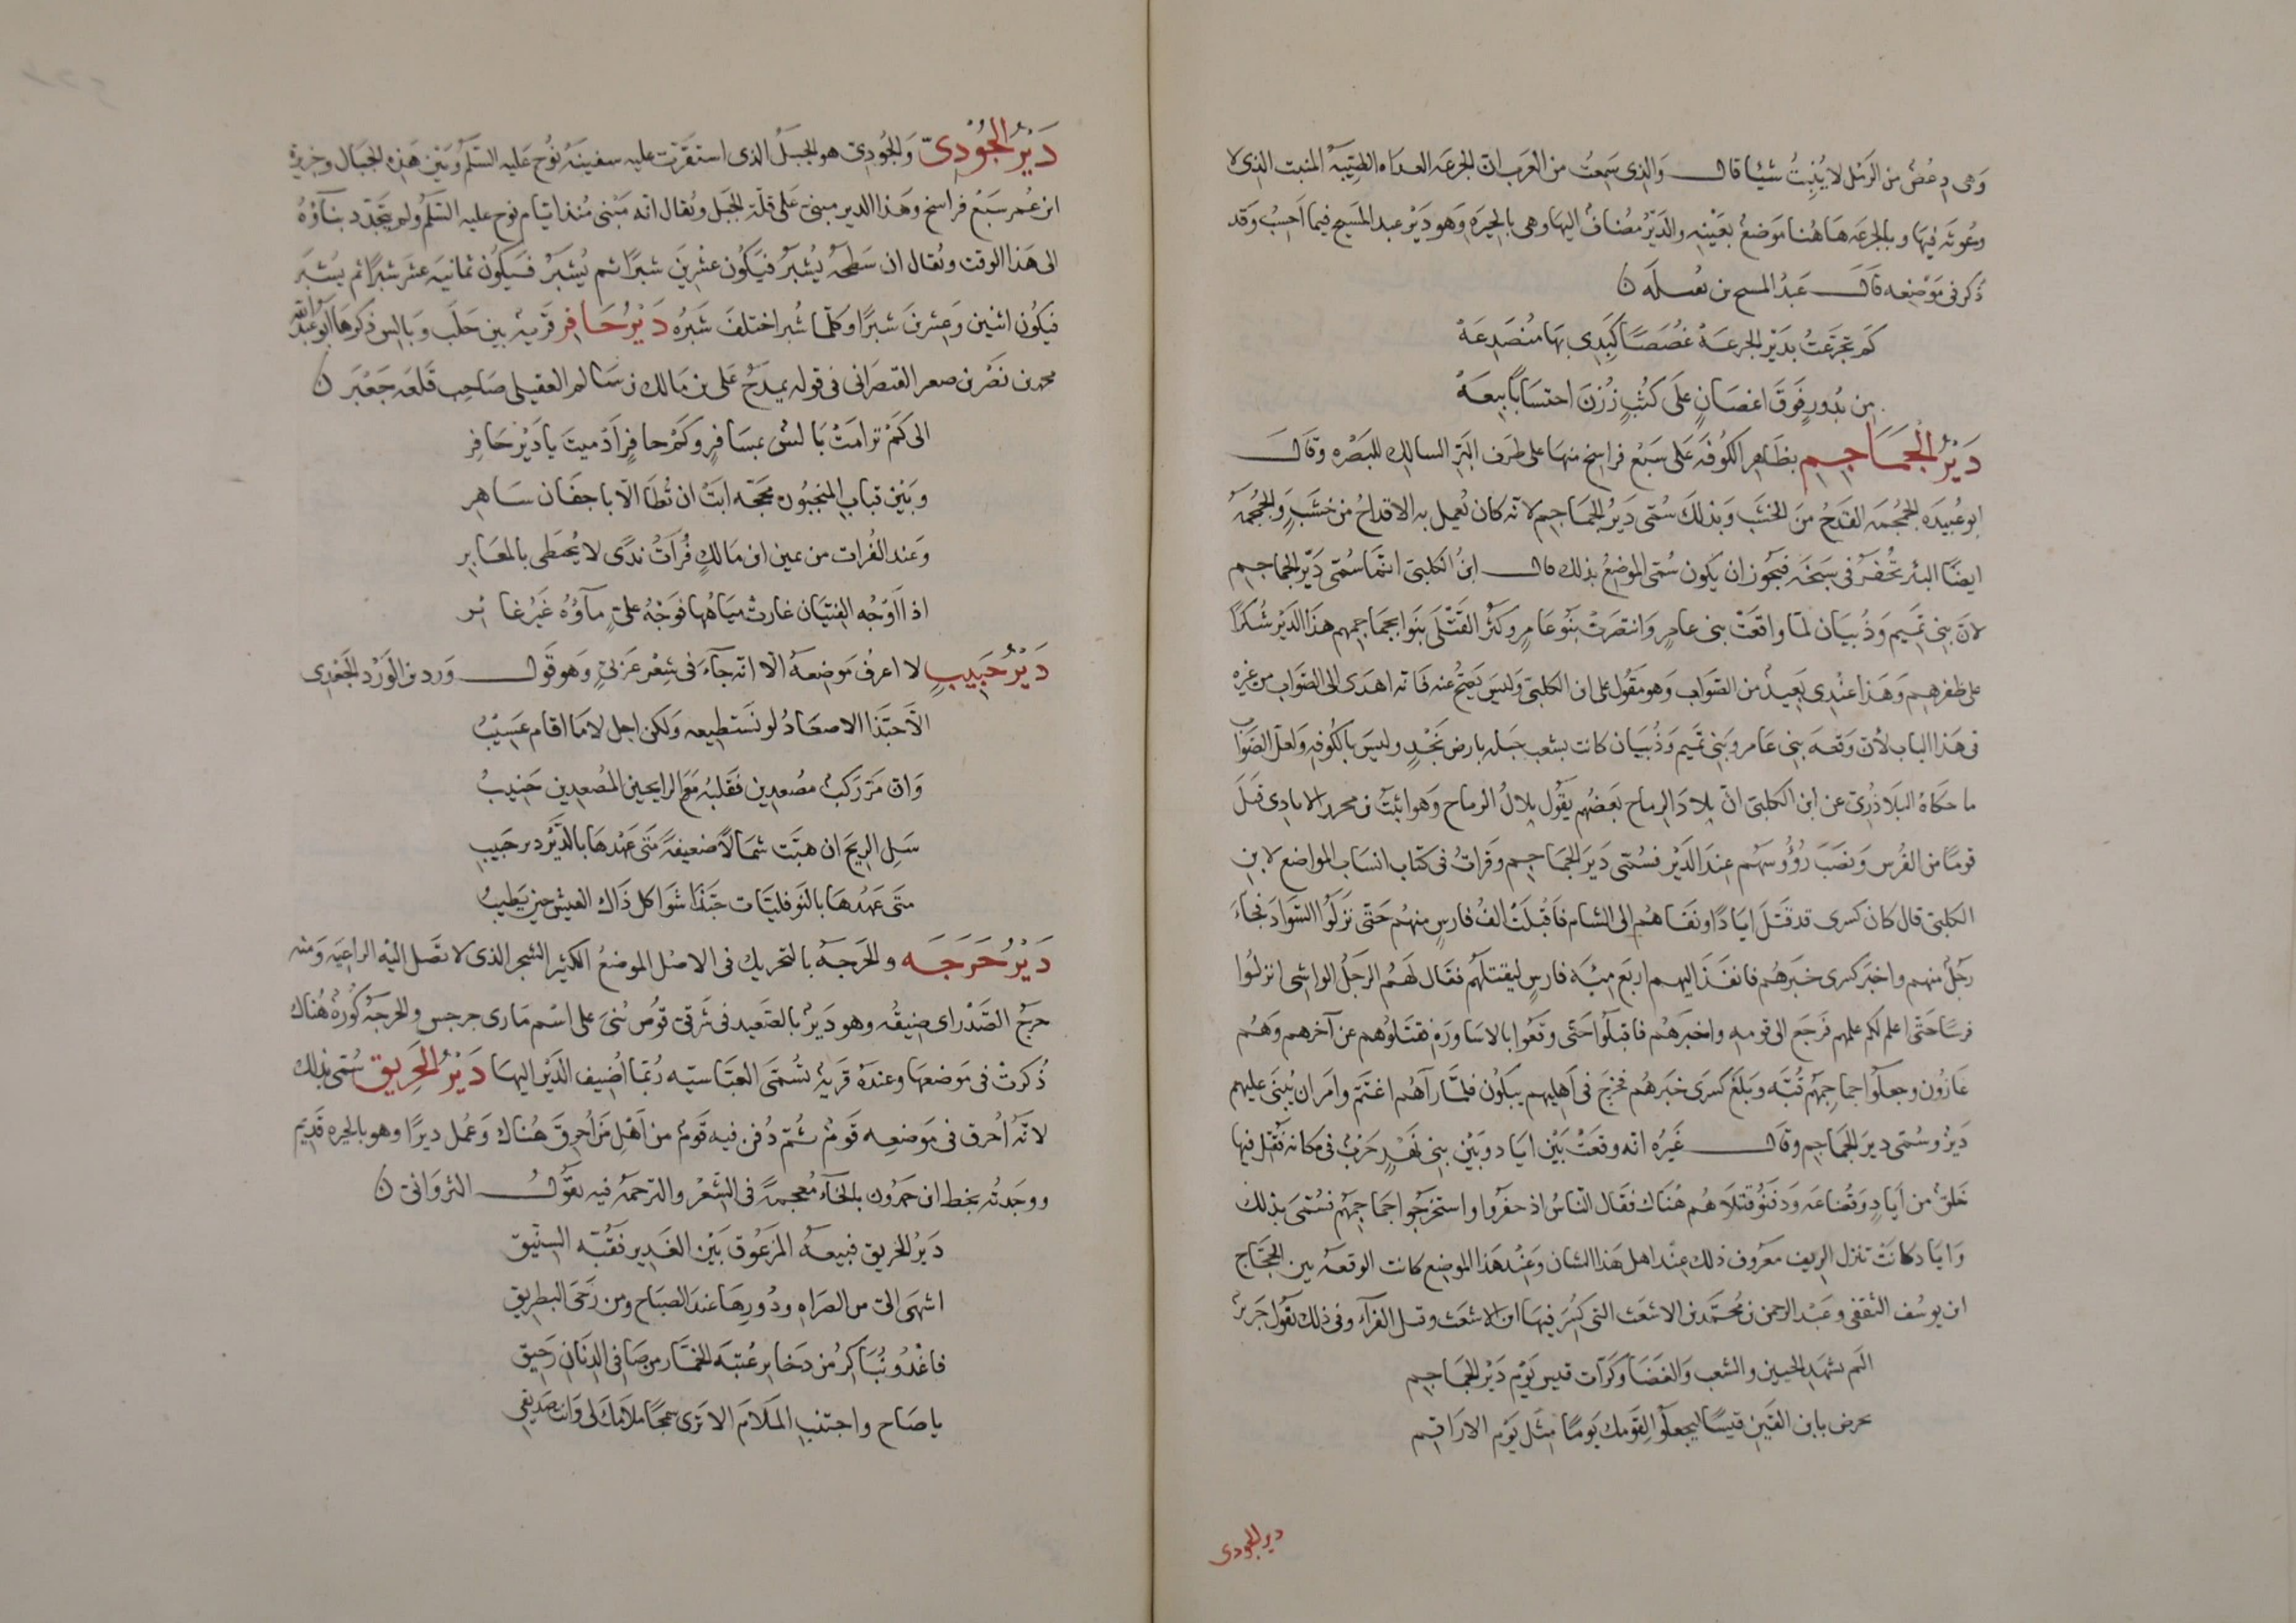 وهى دِعْصٌ من الرمل لا يُنبِتُ شيئا قال والذى سمعتُ من العَرب ان الجرعه العداه الطيّبة المنبت الذى لا
وعُوثه فيها وبالجرعه هَاهُنا مَوضعُ بعَيْنِه والدَيْرُ مُضافٌ اليها وهى بالحِيرَه وَهو دَيْرُ عبد المَسيح فيما اَحسِبُ وقد
ذُكرَ فى مَوْضِعه قال عَبدُ المسيح بن بُقيلَه ن
كَم تجرّعتُ بدَيْر الجرعَةْ غُصَصًا كَبِدِى بهَا مُنصَدِعَةْ
مِن بُدورٍ فَوقَ اغصَانٍ علَى كُثبٍ زُرْنَ احتسَابًا بِيعَهْ
دَيْرُ الجَمَاجِم بظَاهِر الكُوفَه عَلى سَبْع فراسخ منها على طرَف البَرّ السالِك للبَصْرَه وقال
ابو عُبيدَه الجُمجُمَه القدَحُ منَ الخَشَب وَبذلكَ سُمّى دَيْرُ الجمَاجِم لانّه كان يُعمل به الاقداحُ من خشَبٍ والجُمجُمَةُ
ايضًا البئر تُحْفَرُ فى سَبَخَه فيَجُوز ان يكون سُمّى الموضِعُ بذلك قال ابنُ الكلبىّ انّما سُمّى دَيْرَ الجماجم
لانّ بنى تَميم وَذُبيَان لمّا واقعَتْ بنى عامِرٍ وَانتصَرَتْ بَنُو عَامِرٍ وكثُر القَتْلَى بَنَوا بجمَاجِمهم هذا الدَيْرَ شُكرًا
على ظفرهم وَهَذا عنْدِى بَعِيدٌ من الصَّواب وَهو مَقُول على ابن الكلبىّ وَليسَ يَصِحُّ عنه فَانّه اهدَى الى الصَّواب من غَيْرِه
فى هَذا الباب لأنّ وَقعَةَ بنى عَامر وبَنى تَميم وَذُبيَان كانت بشعب جبَله بارض نَجْدٍ وليسَ بالكُوفه وَلعلّ الصَّوَابَ
ما حَكاهُ البَلَاذُرِىّ عن ابن الكلبىّ انّ بِلَادَ الرماح بَعضُهم يقُول بِلالُ الرماح وَهو اثبَتُ بن محرز الايادى قتَلَ
قومًا من الفُرس وَنصَبَ رُؤُوسَهُم عِندَ الدَيْر فسُمّى دَيرَ الجمَاجِم وقراتُ فى كتاب انسَاب المواضع لابن
الكلبىّ قال كان كسرى قد قتَلَ ايادًا ونَفَاهُم الى الشام فَاقبَلَتْ الفُ فارسٍ منهُم حَتّى نزَلُوا السَّوادَ فجَاءَ
رَجُلٌ منهم واخبَرَ كسرى خبَرهُم فانفَذَ اليهم اربَعَ مِئَه فارسٍ ليقتلَهُم فقال لَهُم الرجُلُ الواشى انزلُوا
قرِيبًا حَتّى اعلم لكم علمهم فرَجَع الى قومِه واخبَرهُم فاقبَلُوا حَتّى وقَعُوا بالاسَاورَه فقتَلُوهُم عن آخرهم وَهُم
غَارُون وجعلُوا جماجمهم قُبَّه وبَلغَ كسرَى خبَرهُم فخرَجَ فى اَهليهم يَبكُون فلمّا رآهُم اغتَمَّ وامَرَ ان يُبنَى عليهِم
دَيرٌ وسُمّى ديرَ الجمَاجِم وقال غَيرُهُ انّه وقعَتْ بَيْن اياد وبَيْن بنى نَهْدٍ حَرْبٌ فى مكانه فقُتل فيها
خَلقٌ من اَيادٍ وَقُضَاعَه ودَفَنُوا قتلَاهُم هُنَاك فقال النّاسُ اذ حفرُوا واستخرَجُوا جمَاجِمَهُم فسُمّى بذلك
وَاياد كانَتْ تنزل الريف معرُوف ذلك عندَ اهل هَذا الشان وَعِنْد هَذا الموضع كانت الوقعَةُ بين الحجّاج
ابن يوسُف الثقفى وعَبْد الرحمن بن مُحمَّد بن الاشعَث التى كُسِر فيهَا ابن الاشعَث وقتل القرّآء وفى ذلك يقُول جَرير
الَم تشهَد الحسين والشعب وَالغَضَا وَكرّات قيس يَوْم دَيْر الجمَاجِم
تحرض يا ابن القَين قيسًا ليجعلُوا لقَومكَ يَومًا مِثلَ يَوْم الارَاقم
دير الجودى
دَيْرُ الجُوْدِىّ وَالجُودِىّ هو الجبَلُ الذى استَقَرّت عليه سفينَةُ نوُح عَليه السّلَمُ وبَيْنَ هَذِه الجبَال وجزيرةِ
ابن عُمر سَبَعُ فراسخ وهَذا الدير مبنىٌ عَلى قلّة الجَبل ويُقال انّه مَبْنى مُنذ ايّام نوح عليه السّلَمُ ولم يتجَدَّد بنآؤُهُ
الى هَذا الوقت ويُقال ان سَطحَهُ يُشبَرُ فيَكُون عشْرينَ شبرًا ثم يُشبَرُ فيَكُون ثمانيَه عشَرَ شبرًا ثم يُشبَر
فيكُون اثنين وعشرينَ شبرًا وكُلّما شُبر اختلفَ شَبرُه دَيْرُ حَافِر قَرْيَهٌ بين حَلَب وبَالِس ذكرهَا ابُو عَبْد الله
محمد بن نصْر بن صعير القيصَرانى فى قوله يمدَحُ عَلى بن مَالك بن سَالم العقيلى صَاحِب قَلعَه جَعْبَر ن
الى كَمْ ترامَتْ بَالسٌ بمسَافرٍ وكَمْ حافرٍ اَدْمَيتَ يا دَيْر حَافِر
وبَيْن قباب المنجبُون مَحجّه ابَتْ ان تُطَا الّا باجفَان سَاهر
وَعند الفُرات من يمين ابن مَالكٍ فُرَاتُ ندًى لا يُختَطى بالمعَابر
اذا اَوْجُه الفِتيَان غارَتْ مِيَاهُهَا فوَجْهُ علىٍّ مآوُهُ غَيْرُ غَائر
دَيْرُ حَبيبٍ لا اعرفُ مَوضعهُ الّا انّه جآءَ فى شِعْر عَرَبىٍّ وهو قول ورد بن الوَرْد الجَعْدى
الَا حبّذا الاصعَادُ لو نَستطيعه وَلكن اجل لا مَا اقام عَسِيْبُ
وَان مَرّ ركبٌ مصْعدِين فقَلبُهُ مَع الرايحين المُصْعِدين جَنِيبُ
سَلِ الريحَ ان هبّت شَمالًا ضعيفَةً متَى عَهْدُهَا بالدَيْر دير حَبيبِ
متَى عَهْدُهَا بالنَوفليَّات حبّذَا شَواكل ذَاك العيش حينَ يَطيبُ
دَيْرُ حَرَجَه والحَرجَهُ بالتحريك فى الاصْل الموضعُ الكثير الشجر الذى لا تصَل اليْه الراعيَه ومنه
حرجُ الصَّدْر اى ضِيقُه وهو دَيرٌ بالصَّعيد فى شَرقى قُوص بُنىَ على اسْم مَارى جرجس والحرجَهُ كُورَةٌ هُناك
ذُكرتْ فى مَوضعهَا وعندَهُ قريَةٌ تُسَمّى العبّاسيّه رُبّما اُضِيف الدَيْر اليهَا دَيْرُ الحَرِيق سُمّى بذلك
لانّه اُحرق فى مَوضعِه قَومٌ ثمّ دُفن فيه قَومٌ من اَهْلِ مَن اُحرقَ هُنَاك وَعُمل ديرًا وهو بالحيره قَديم
ووجَدتُه بخط ابن حَمدُون بالخاء مُعجَمهً فى الشعْر والترجمَهُ فيه يقُول الثروَانى ن
دَيرُ الحريق فبِيعَةُ المَزعُوق بَيْن الغَدِير فَقُبَّه السّنّيق
اشهَى الىّ من الصَّرَاه ودُورِهَا عندَ الصبَاح ومن رَحَى البطريق
فاغْدُ نُبَاكرُ من ذخائر عُتبَه الخمَّار من صَافى الدِنَان رَحِيق
يا صَاح واجتنب المَلَامَ الا تَرى سَمِجًا مَلَامُكَ لى وَانتَ صَديقى